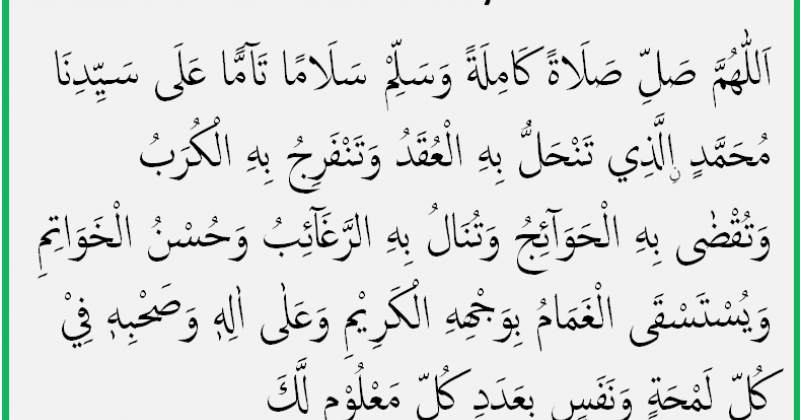 اَللّٰهُمَّ صَلِّ صَلَاةً كَامِلَةً وَسَلِّمْ سَلَامًا تَآمًّا عَلَى سَيِّدِنَا
مُحَمَّدٍ ࣙالَّذِي تَنْحَلُّ بِهِ الْعُقَدُ وَتَنْفَرِجُ بِهِ الْكُرَبُ
وَتُقْضٰى بِهِ الْحَوَآئِجُ وَتُنَالُ بِهِ الرَّغَآئِبُ وَحُسْنُ الْخَوَاتِمِ
وَيُسْتَسْقَى الْغَمَامُ بِوَجْهِهِ الْكَرِيْمِ وَعَلٰى اٰلِهٖ وَصَحْبِهٖ فِيْ
كُلِّ لَمْحَةٍ وَنَفَسٍ بِعَدَدِ كُلِّ مَعْلُوْمٍ لَّكَ